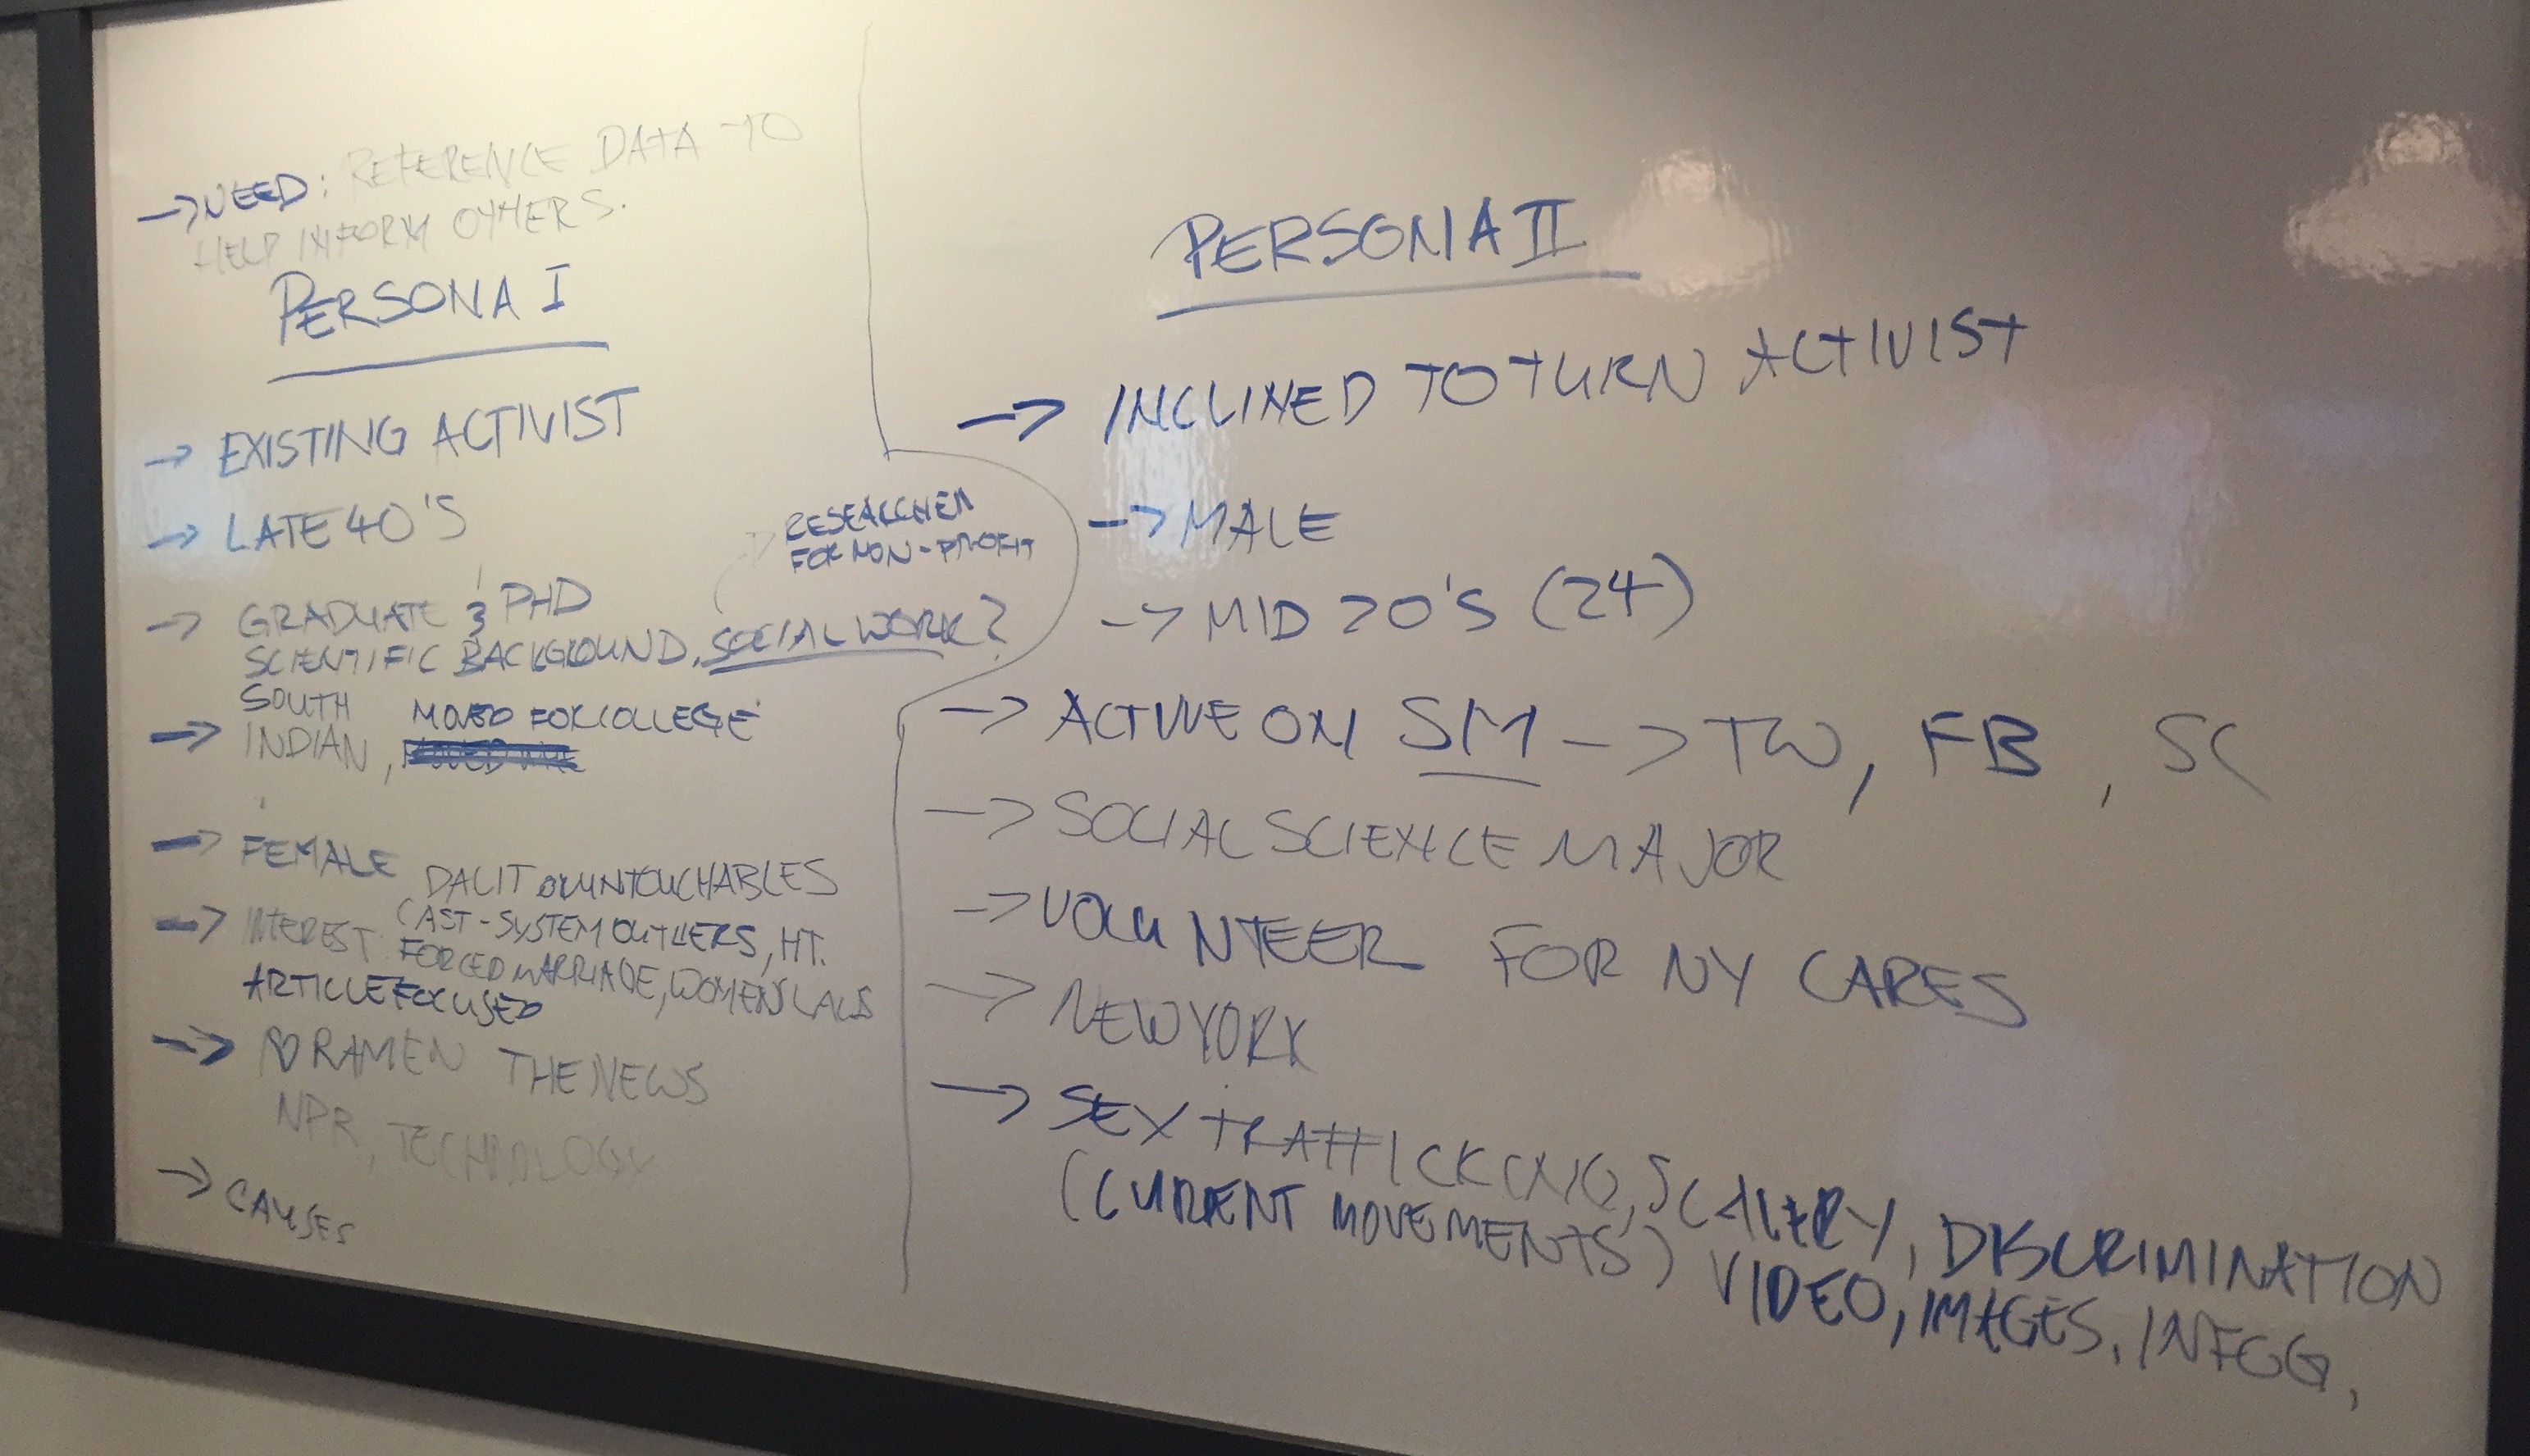 → NEED: REFERENCE DATA TO
HELP INFORM OTHERS.
PERSONA I
→ EXISTING ACTIVIST
→ LATE 40'S
→ GRADUATE & PHD
SCIENTIFIC BACKGROUND, SOCIAL WORK?
→ RESEARCHER
FOR NON-PROFIT
→ SOUTH
INDIAN, MOVED FOR COLLEGE
→ FEMALE
→ INTEREST. DALIT OR UNTOUCHABLES
CAST-SYSTEM OUTLIERS, HT.
FORCED MARRIAGE, WOMENS LAWS
ARTICLE FOCUSED
→ ♡ RAMEN THE NEWS
NPR, TECHNOLOGY
→ CAUSES
PERSONA II
→ INCLINED TO TURN ACTIVIST
→ MALE
→ MID 20'S (24)
→ ACTIVE ON SM → TW, FB, SC
→ SOCIAL SCIENCE MAJOR
→ VOLUNTEER FOR NY CARES
→ NEW YORK
→ SEX TRAFFICKING, SLAVERY, DISCRIMINATION
(CURRENT MOVEMENTS) VIDEO, IMAGES, INFOG,